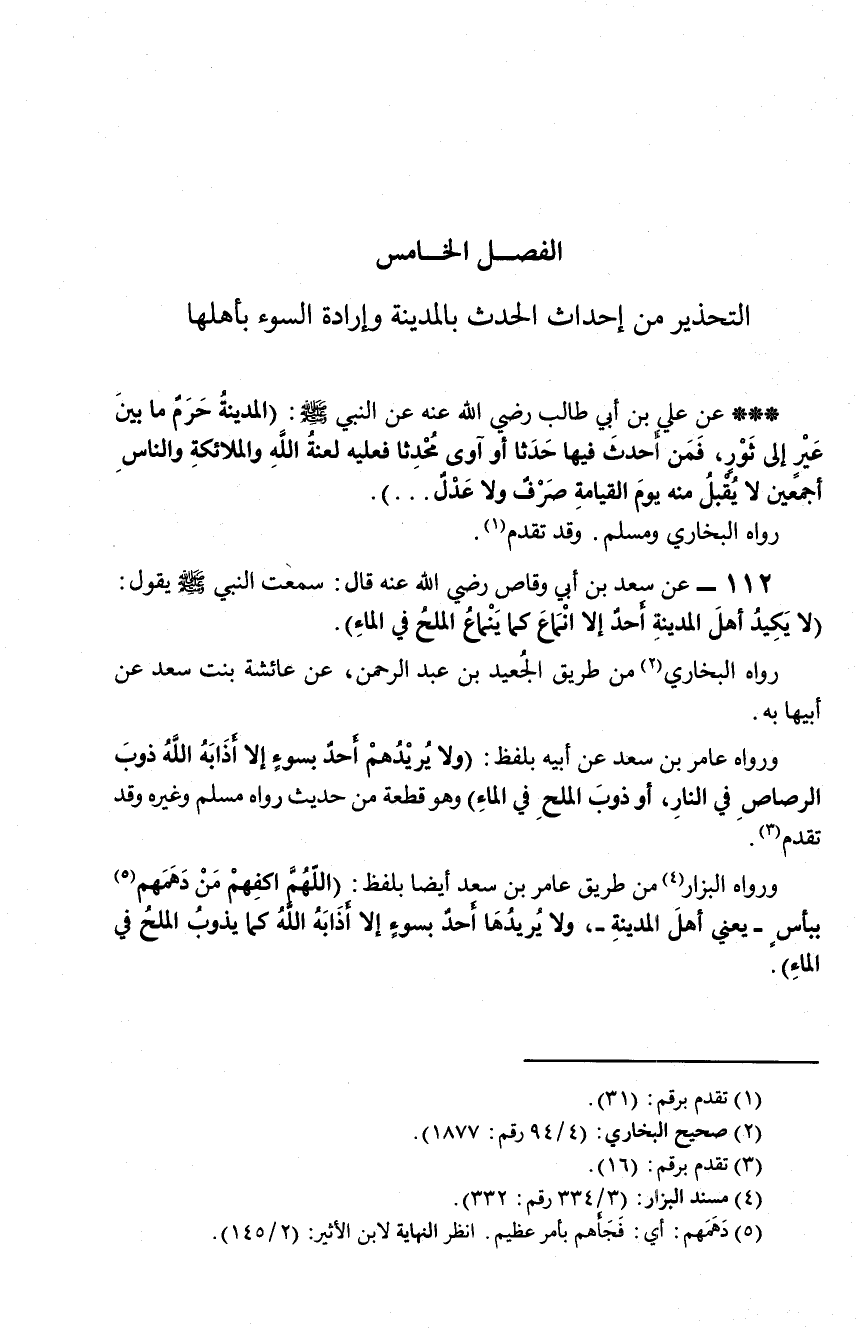 الفصل الخامس
التحذير من إحداث الحدث بالمدينة وإرادة السوء بأهلها
*** عن علي بن أبي طالب رضي الله عنه عن النبي ﷺ: (المدينةُ حَرَمٌ ما بينَ
عَيْرٍ إلى ثَوْرٍ، فَمَن أَحدثَ فيها حَدَثا أو آوى مُحْدِثا فعليه لعنةُ اللَّهِ والملائكةِ والناسِ
أجمعين لا يُقْبلُ منه يومَ القيامةِ صَرْفٌ ولا عَدْلٌ ...).
رواه البخاري ومسلم. وقد تقدم(١).
١١٢ ـ عن سعد بن أبي وقاص رضي الله عنه قال: سمعت النبي ﷺ يقول:
(لا يَكِيدُ أهلَ المدينةِ أَحدٌ إلا انْمَاعَ كما يَنْماعُ الملحُ في الماءِ).
رواه البخاري(٢) من طريق الجُعيد بن عبد الرحمن، عن عائشة بنت سعد عن
أبيها به.
ورواه عامر بن سعد عن أبيه بلفظ: (ولا يُريْدُهمْ أَحدٌ بسوءٍ إلا أَذَابَهُ اللَّهُ ذوبَ
الرصاصِ في النارِ، أو ذوبَ الملحِ في الماءِ) وهو قطعة من حديث رواه مسلم وغيره وقد
تقدم(٣).
ورواه البزار(٤) من طريق عامر بن سعد أيضا بلفظ: (اللّهُمَّ اكفِهمْ مَنْ دَهَمَهم(٥)
ببأسٍ ـ يعني أهلَ المدينةِ ـ، ولا يُريدُهَا أَحدٌ بسوءٍ إلا أَذَابَهُ اللَّهُ كما يذوبُ الملحُ في
الماءِ).
(١) تقدم برقم: (٣١).
(٢) صحيح البخاري: (٩٤/٤ رقم: ١٨٧٧).
(٣) تقدم برقم: (١٦).
(٤) مسند البزار: (٣٣٤/٣ رقم: ٣٣٢).
(٥) دَهَمَهم: أي: فَجَأَهم بأمر عظيم. انظر النهاية لابن الأثير: (١٤٥/٢).